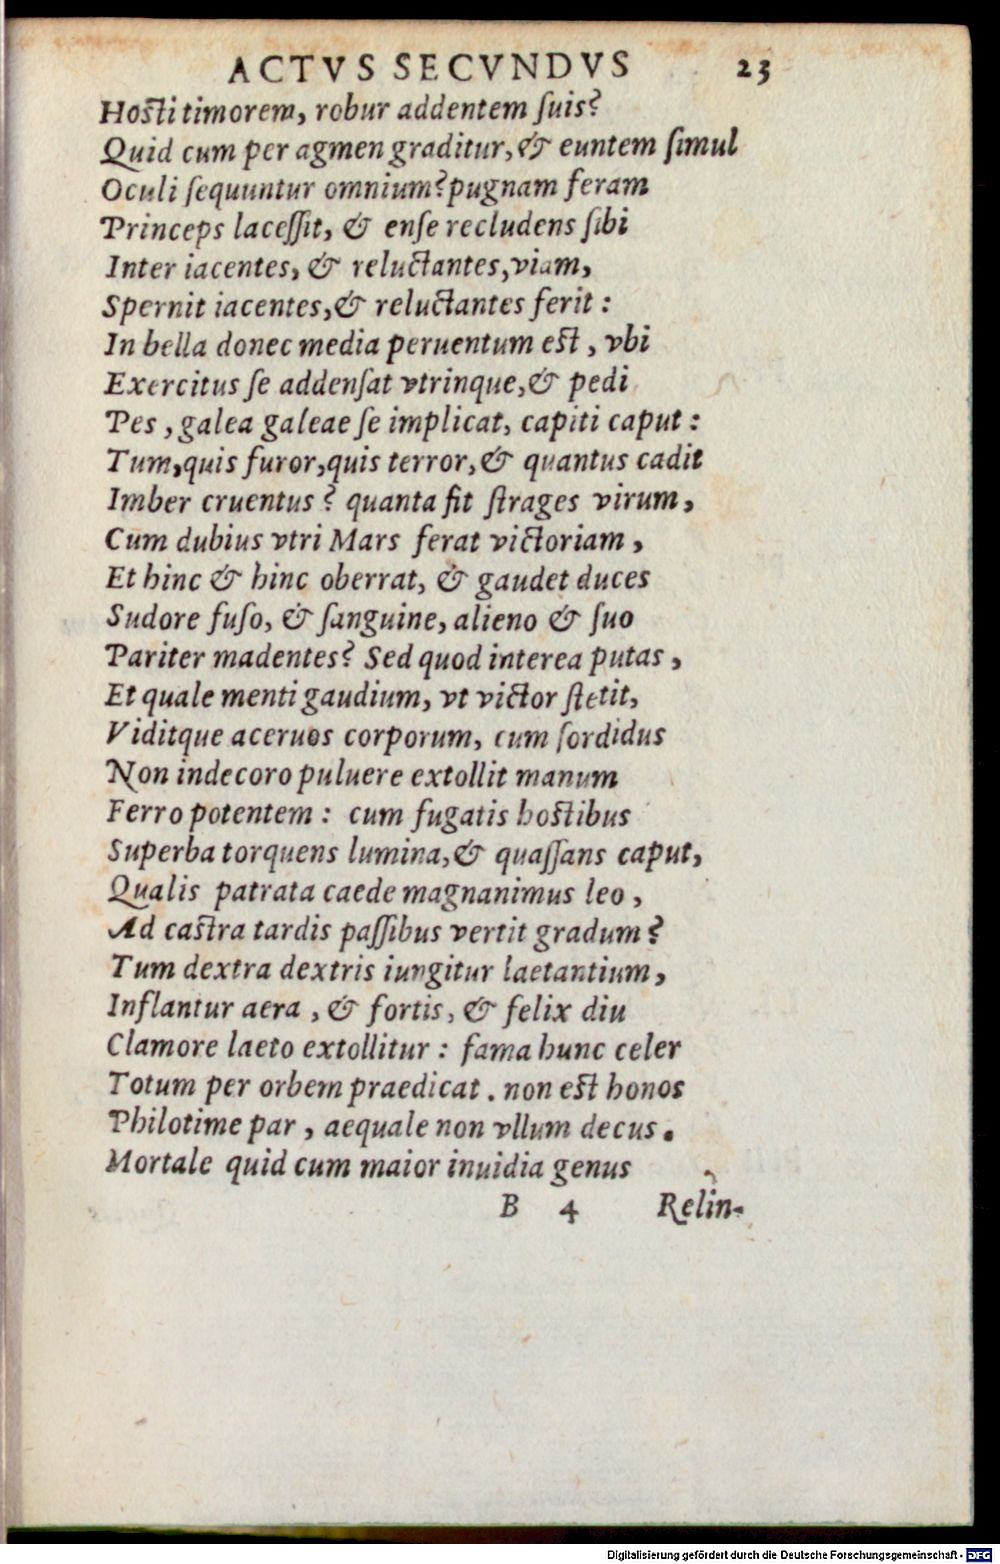 ACTVS SECVNDVS 23
Hosti timorem, robur addentem ſuis?
Quid cum per agmen graditur, & euntem ſimul
Oculi ſequuntur omnium? pugnam feram
Princeps laceſſit, & enſe recludens ſibi
Inter iacentes, & reluctantes, viam,
Spernit iacentes, & reluctantes ferit :
In bella donec media peruentum est , vbi
Exercitus ſe addenſat vtrinque, & pedi
Pes , galea galeae ſe implicat, capiti caput :
Tum, quis furor, quis terror, & quantus cadit
Imber cruentus ? quanta fit ſtrages virum ,
Cum dubius vtri Mars ferat victoriam ,
Et hinc & hinc oberrat, & gaudet duces
Sudore fuſo, & ſanguine, alieno & ſuo
Pariter madentes? Sed quod interea putas ,
Et quale menti gaudium, vt victor ſtetit,
Viditque aceruos corporum, cum ſordidus
Non indecoro puluere extollit manum
Ferro potentem : cum fugatis hostibus
Superba torquens lumina, & quaſſans caput,
Qualis patrata caede magnanimus leo ,
Ad castra tardis paſſibus vertit gradum ?
Tum dextra dextris iungitur laetantium ,
Inflantur aera , & fortis, & felix diu
Clamore laeto extollitur : fama hunc celer
Totum per orbem praedicat . non est honos
Philotime par , aequale non vllum decus .
Mortale quid cum maior inuidia genus
B 4 Relin-
Digitalisierung gefördert durch die Deutsche Forschungsgemeinschaft - DFG